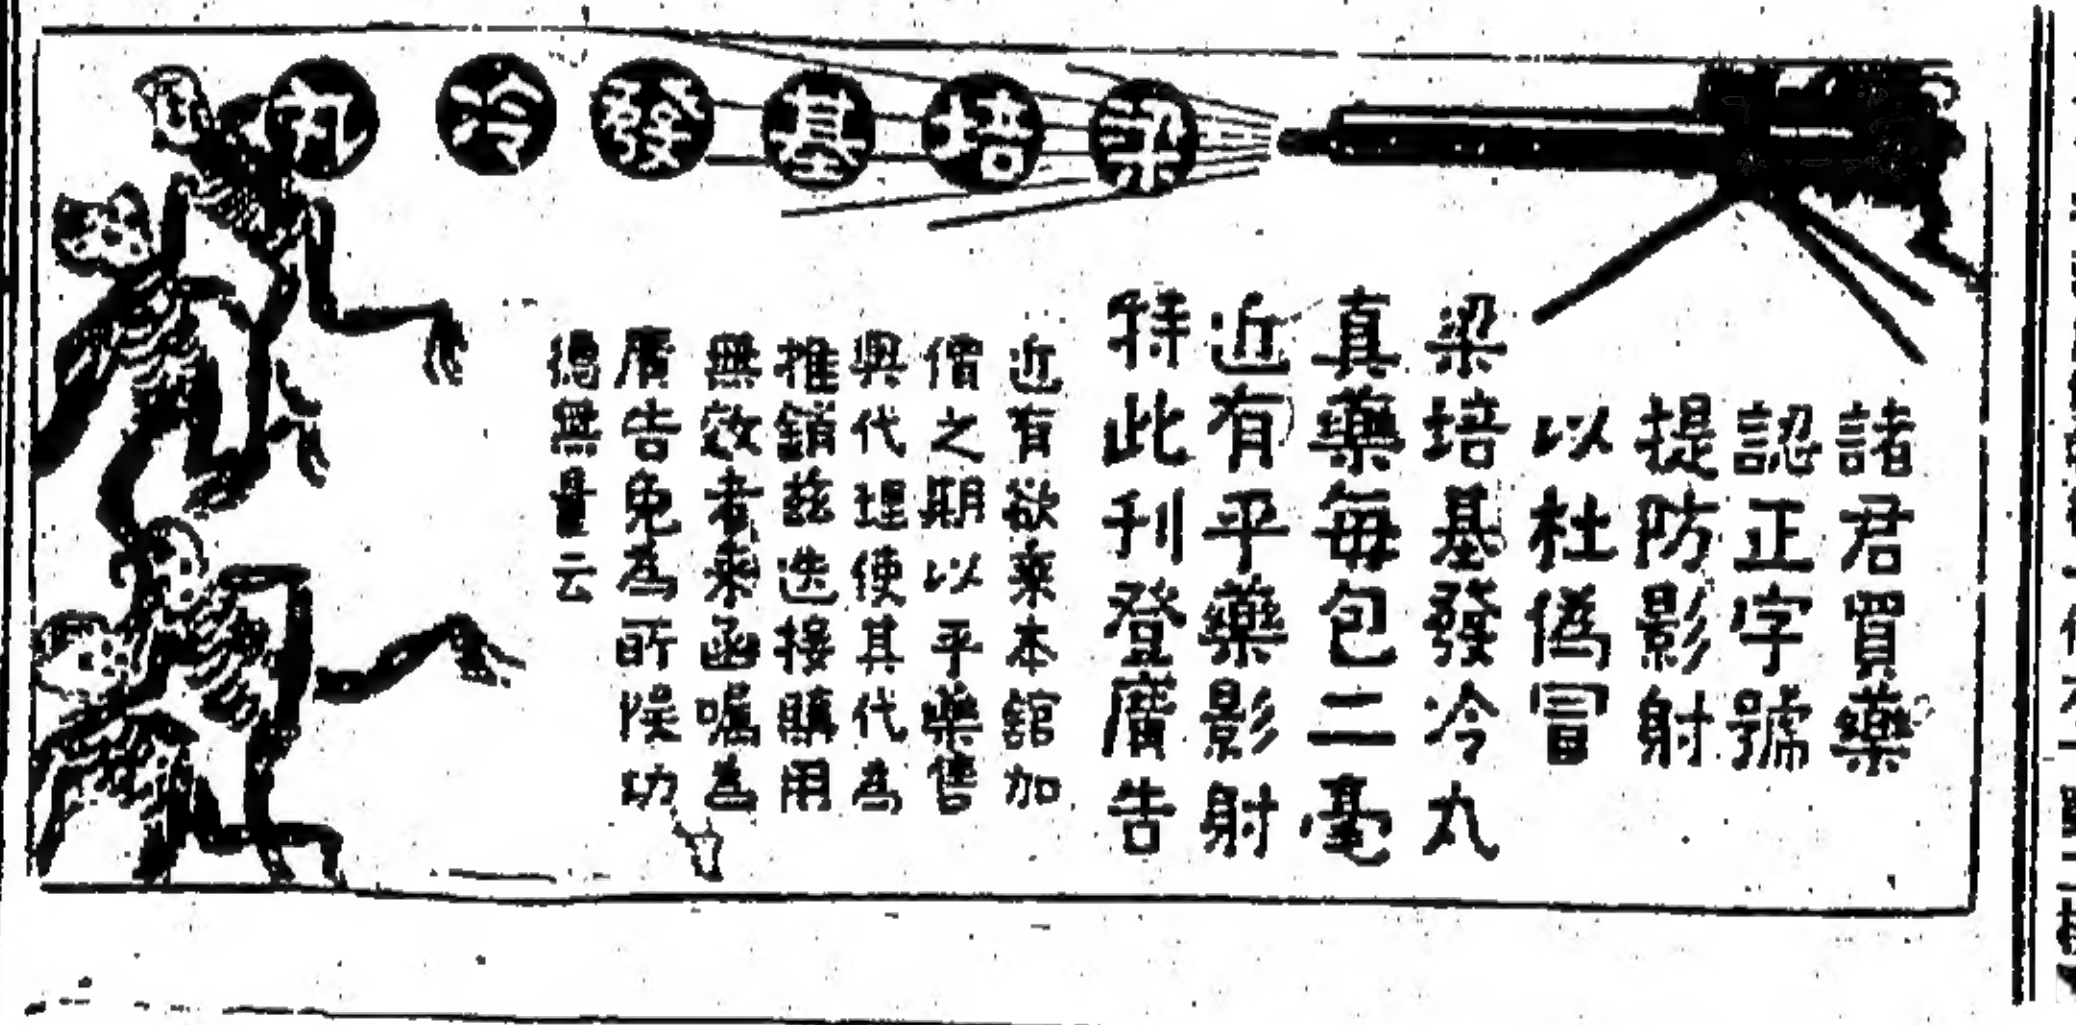 梁培基發冷丸
諸君買藥
認正字號
提防影射
以杜僞冒
梁培基發冷丸
真藥每包二毫
近有平藥影射
特此刊登廣告
近有欲乘本舘加
價之期以平藥售
與代理使其代為
推銷茲迭接購用
無效者來函囑為
廣告免為所悞功
德無量云